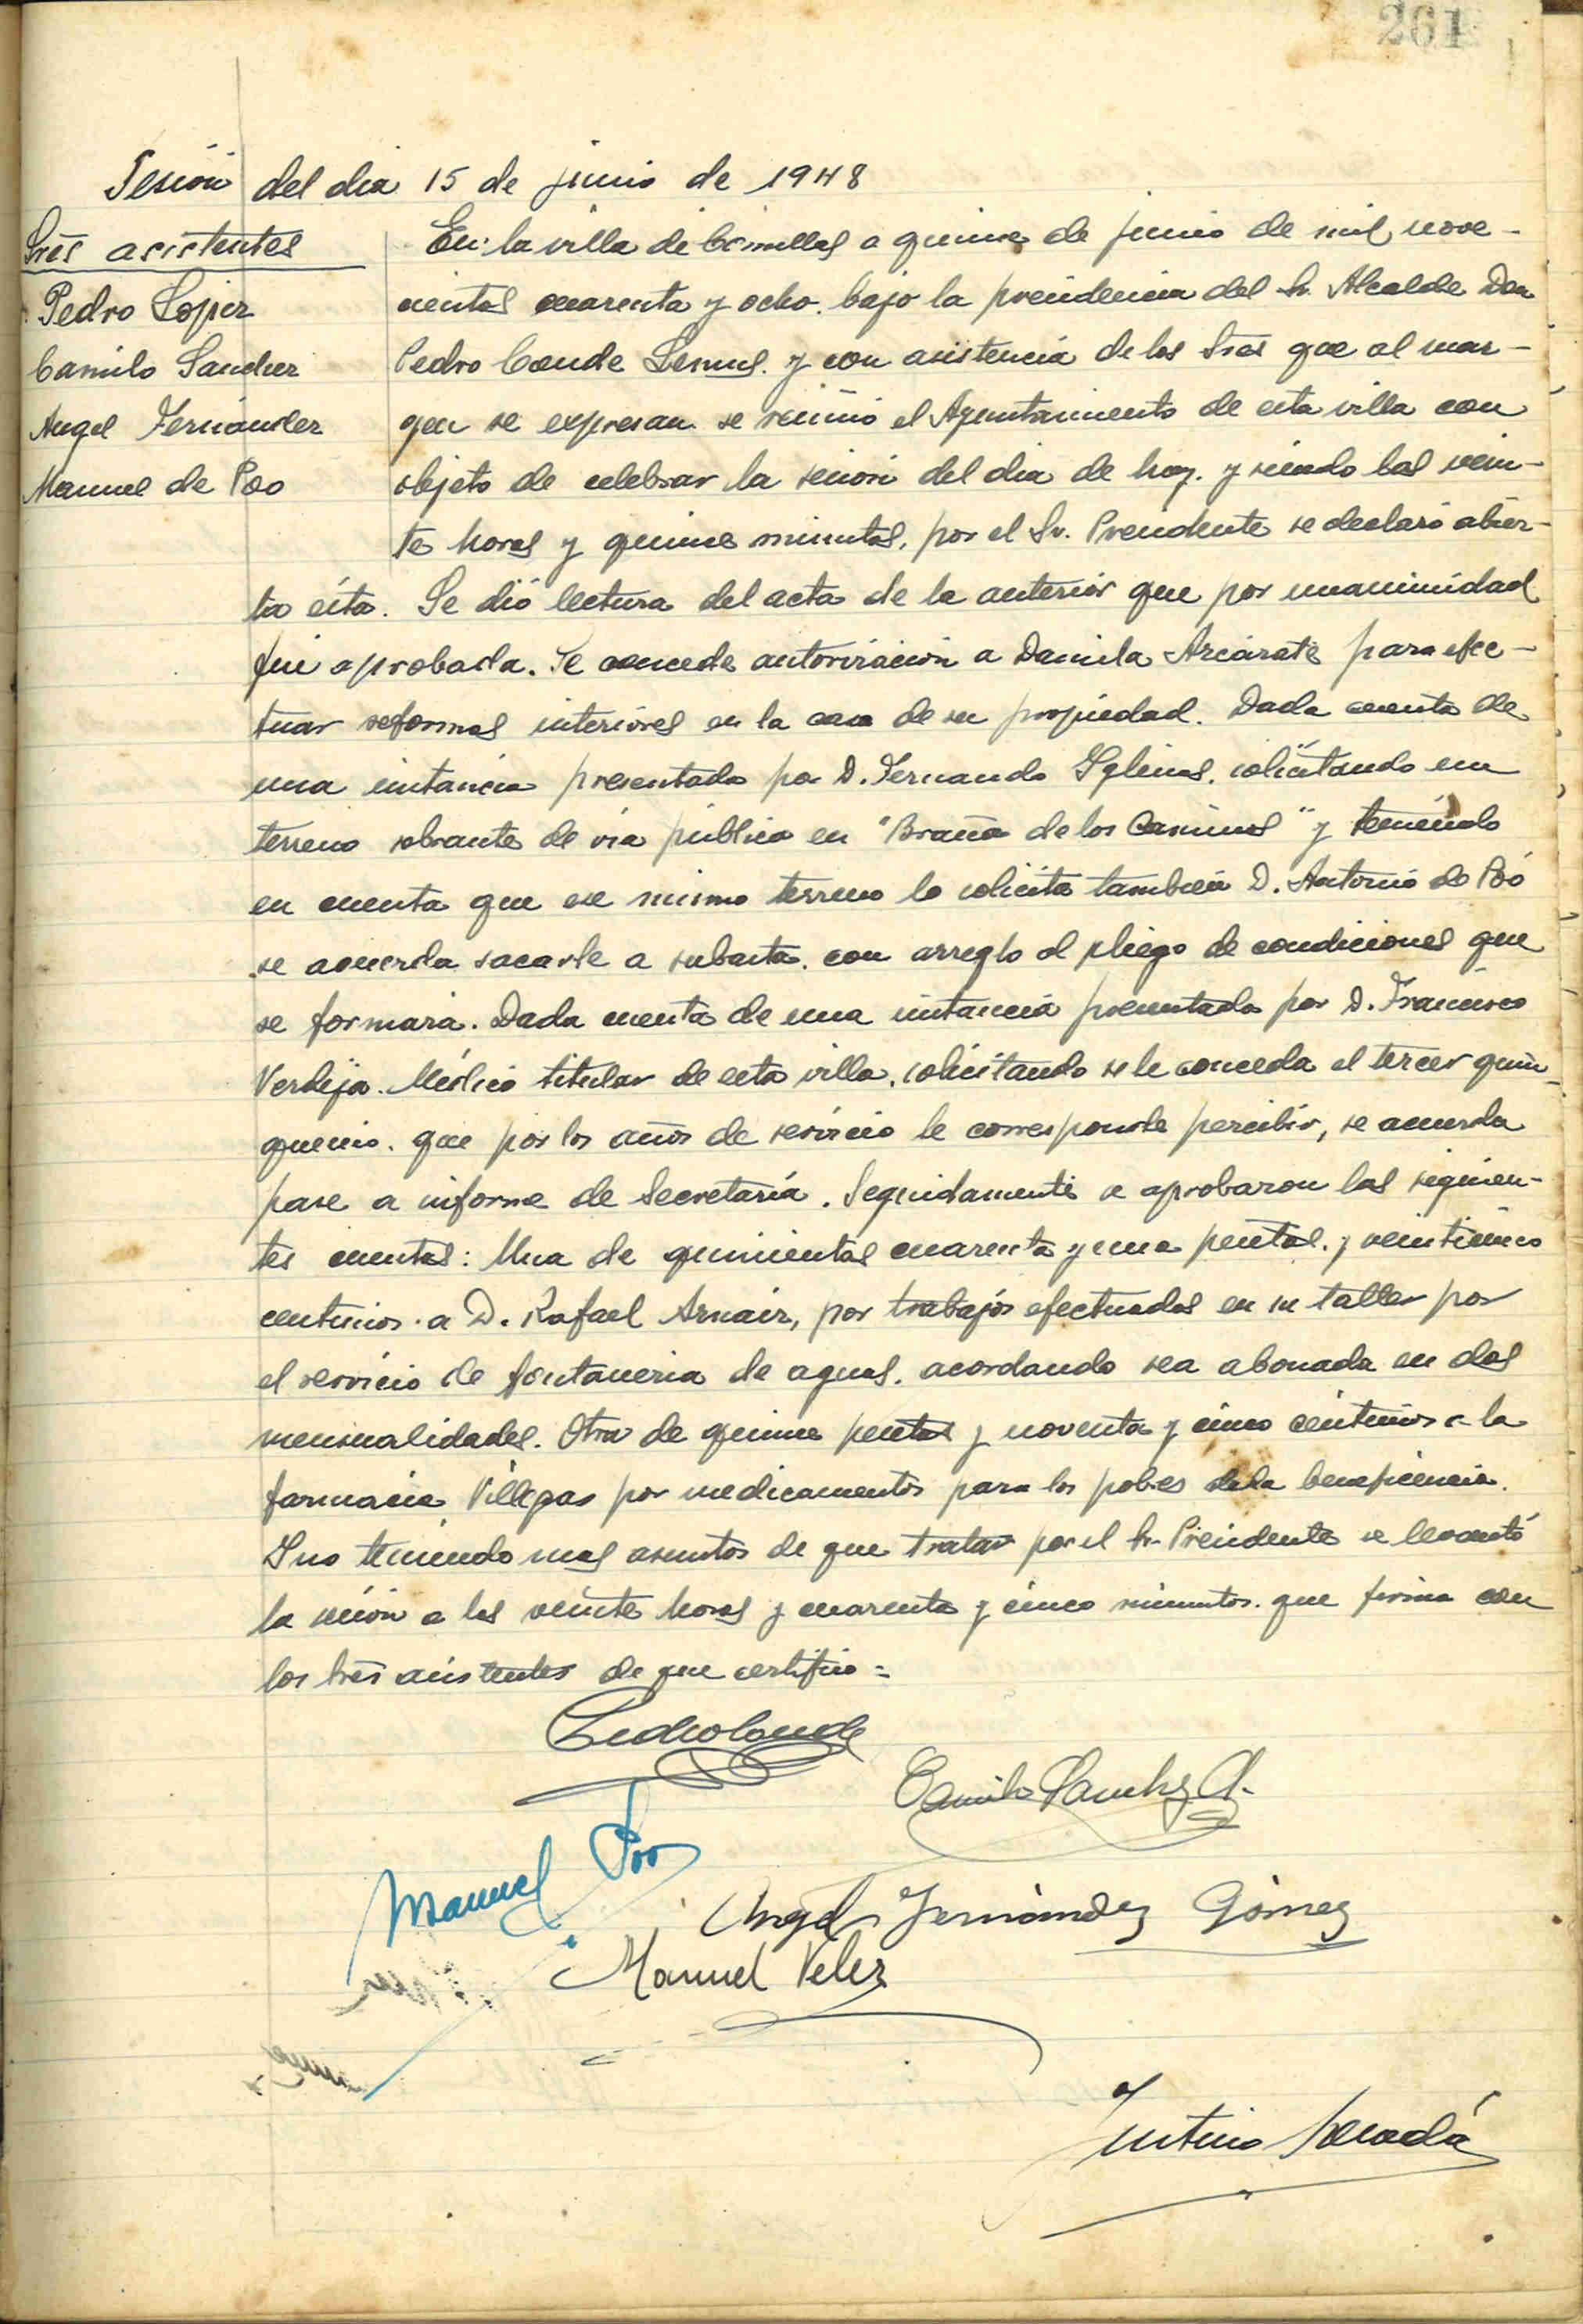 261
Sesión del dia 15 de junio de 1948
Sres asistentes
Pedro Lopez
Camilo Sanchez
Angel Fernandez
Manuel de Poo
En la villa de Comillas a quince de junio de mil nove-
cientos cuarenta y ocho. bajo la presidencia del Sr. Alcalde Don
Pedro Conde Lemus. y con asistencia de los Sres que al mar-
gen se expresan. se reunió el Ayuntamiento de esta villa con
objeto de celebrar la sesión del dia de hoy. y siendo las vein-
te horas y quince minutos, por el Sr. Presidente se declaró abier-
ta ésta. Se dió lectura del acta de la anterior que por unanimidad
fué aprobada. Se concede autorización a Daniela Azcárate para efec-
tuar reformas interiores en la casa de su propiedad. Dada cuenta de
una instancia presentada por D. Fernando Yglesias. solicitando un
terreno sobrante de vía pública en "Braña de los Caminos" y teniendo
en cuenta que ese mismo terreno lo solicita también D. Antonio de Poó
se acuerda sacarle a subasta. con arreglo al pliego de condiciones que
se formará. Dada cuenta de una instancia presentada por D. Francisco
Verdeja. Médico titular de esta villa. solicitando se le conceda el tercer quin-
quenio. que por los años de servicio le corresponde percibir, se acuerda
pase a informe de Secretaría. Seguidamente se aprobaron las siguien-
tes cuentas: Una de quinientas cuarenta y una pesetas. y veinticinco
centimos. a D. Rafael Arnaiz, por trabajos efectuados en su taller por
el servicio de fontaneria de aguas. acordando sea abonada en dos
mensualidades. Otra de quince pesetas y noventa y cinco céntimos a la
farmacia Villegas por medicamentos para los pobres de la beneficencia.
Y no teniendo mas asuntos de que tratar por el Sr. Presidente se levantó
la sesión a las veinte horas y cuarenta y cinco minutos. que firma con
los Sres asistentes de que certifico=
Pedro Conde
Camilo Sanchez A.
Manuel Poo
Angel Fernández Gómez
Manuel Velez